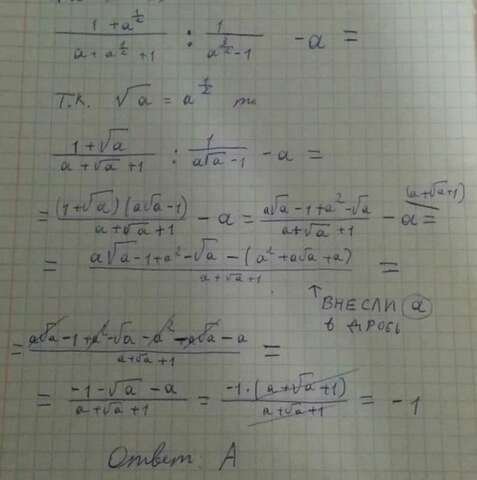 (1 + a^(1/2)) / (a + a^(1/2) + 1) : 1 / (a^(3/2) - 1) - a =
Т.к. √a = a^(1/2) то
(1 + √a) / (a + √a + 1) : 1 / (a√a - 1) - a =
= (1 + √a)(a√a - 1) / (a + √a + 1) - a = (a√a - 1 + a² - √a) / (a + √a + 1) - a (a + √a + 1) =
= (a√a - 1 + a² - √a - (a² + a√a + a)) / (a + √a + 1) =
↑ ВНЕСЛИ a
в дробь
= (a√a - 1 + a² - √a - a² - a√a - a) / (a + √a + 1) =
= (-1 - √a - a) / (a + √a + 1) = -1·(a + √a + 1) / (a + √a + 1) = -1
Ответ: А